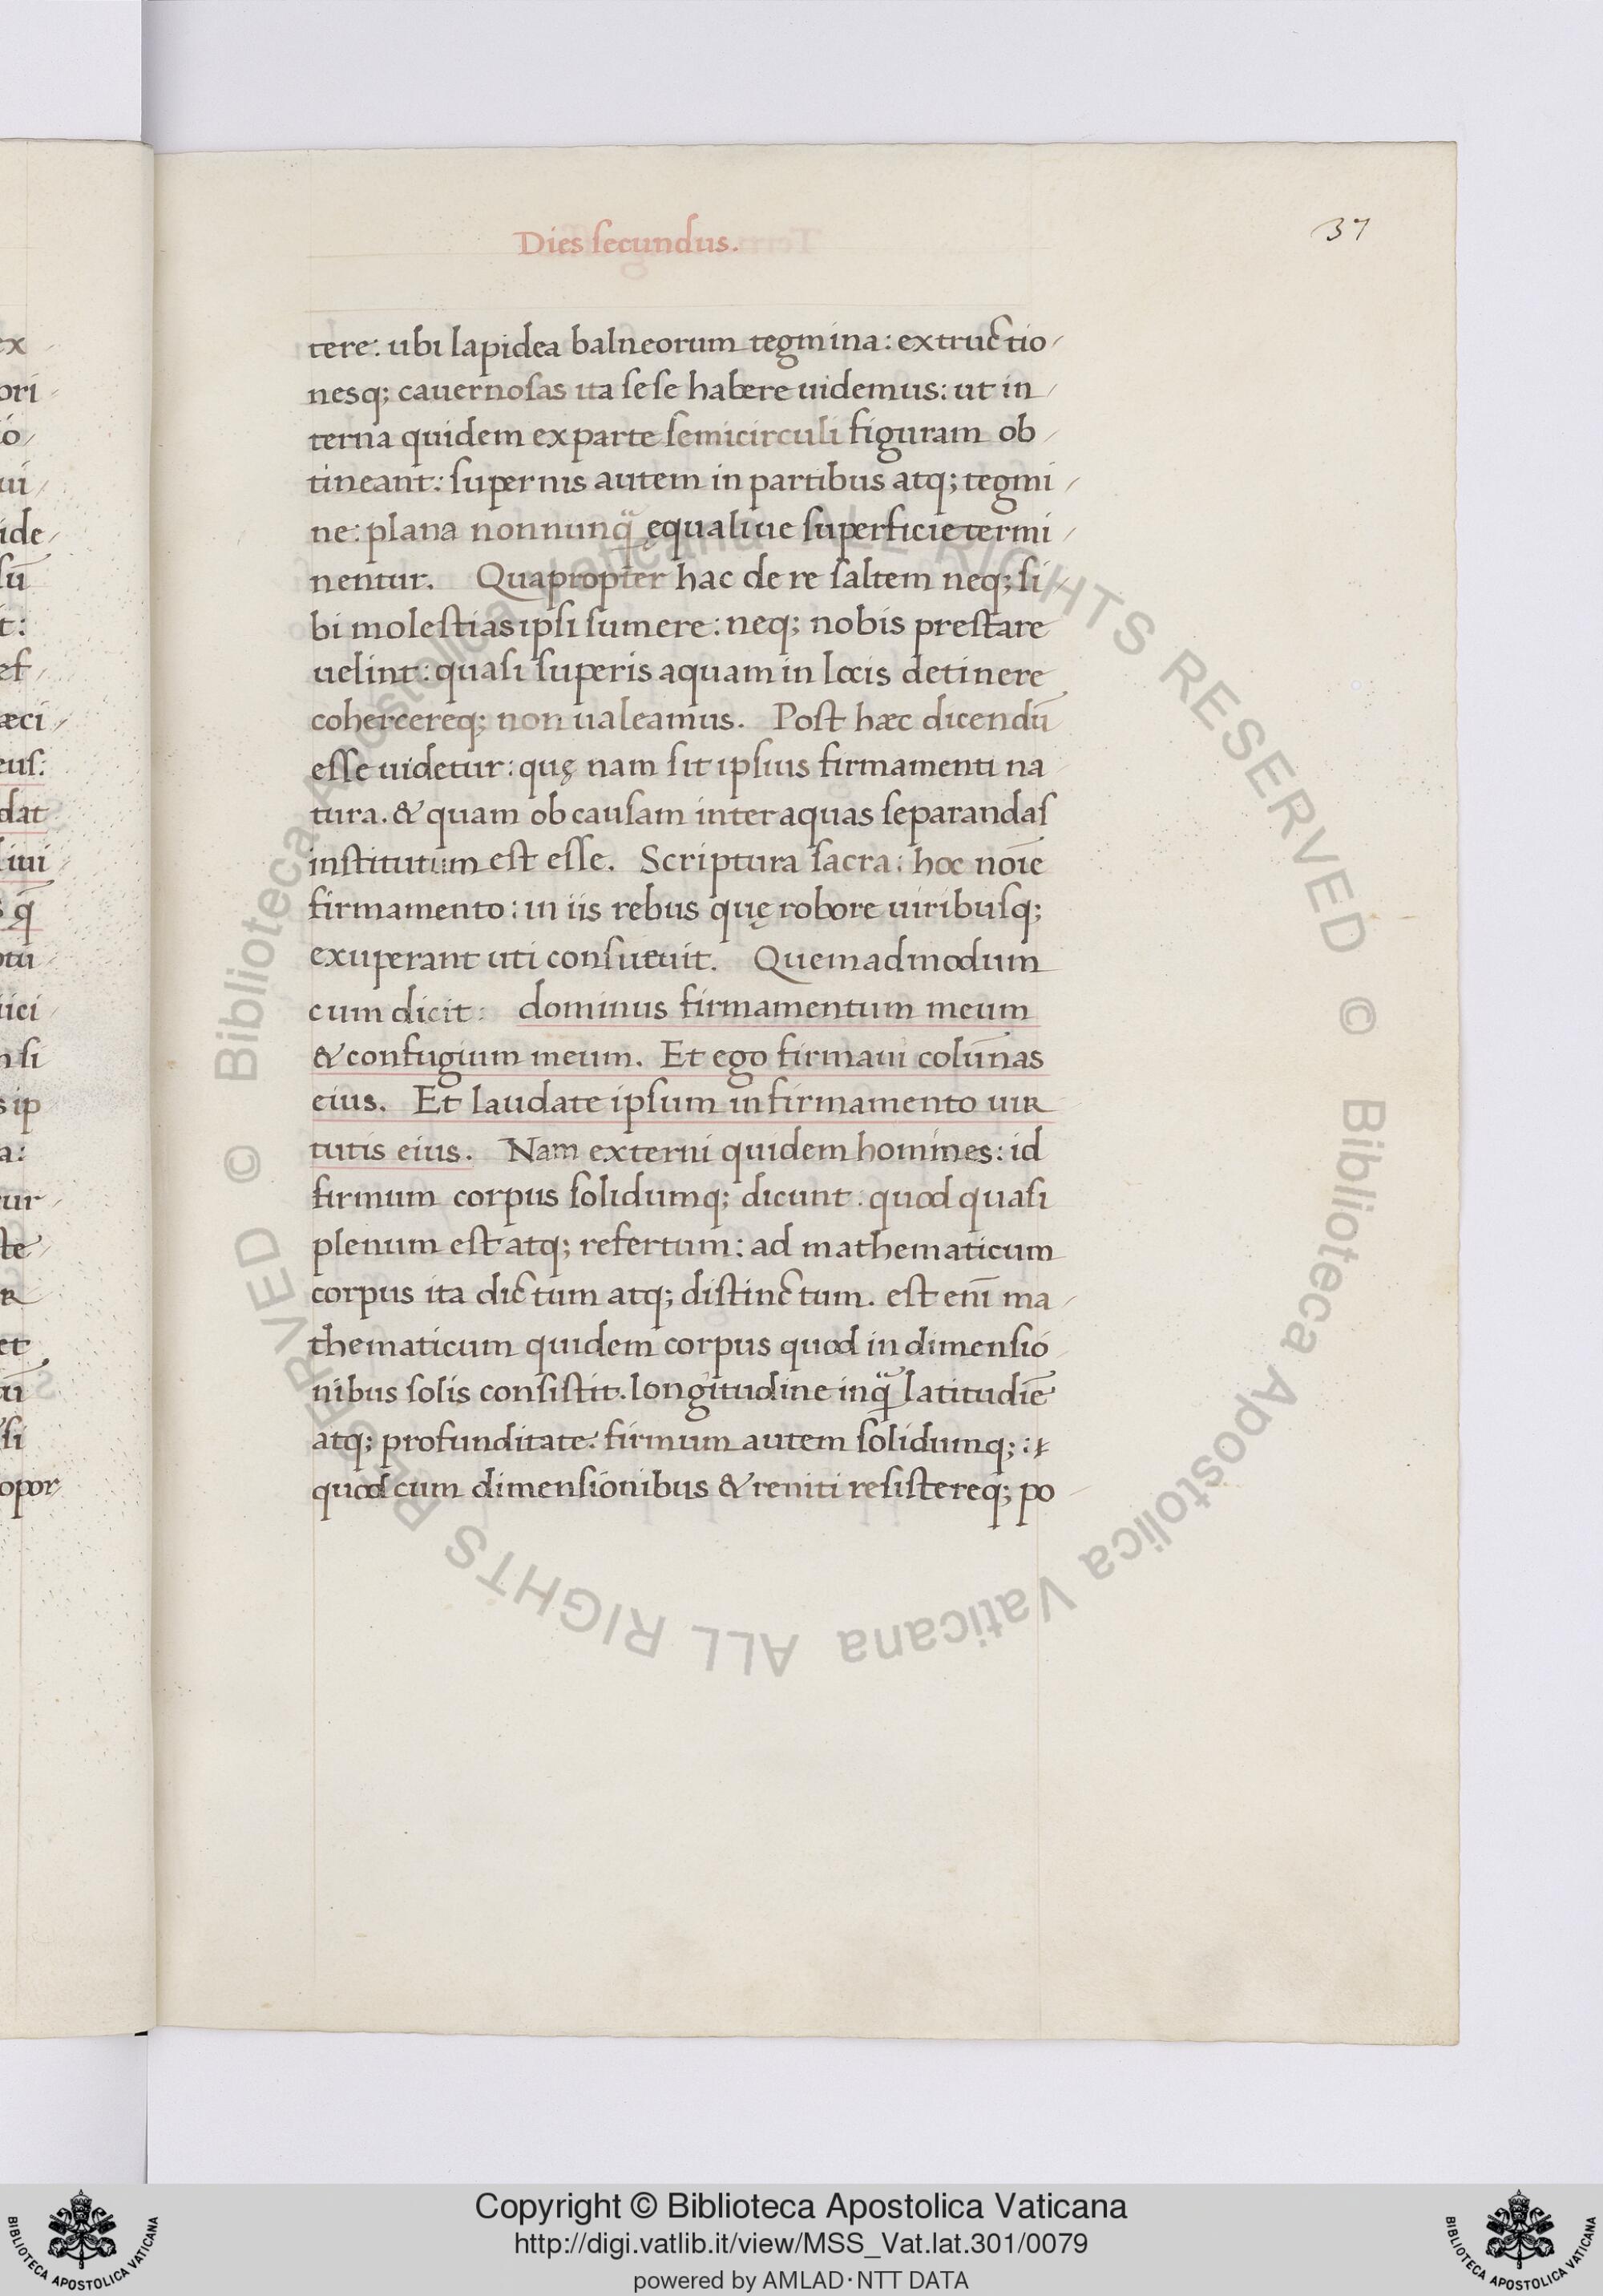 Dies secundus.
37
tere: ubi lapidea balneorum tegmina: extructio
nesq; cauernosas ita sese habere uidemus: ut in
terna quidem ex parte semicirculi figuram ob
tineant: supernis autem in partibus atq; tegmi
ne: plana nonnunq̃ ęqualiue superficie termi
nentur. Quapropter hac de re saltem neq; si
bi molestias ipsi sumere: neq; nobis prestare
uelint: quasi superis aquam in locis detinere
cohercereq; non ualeamus. Post hæc dicendū
esse uidetur: quę nam sit ipsius firmamenti na
tura. & quam ob causam inter aquas separandas
institutum est esse. Scriptura sacra: hoc noīe
firmamento: in iis rebus quę robore uiribusq;
exuperant uti consueuit. Quemadmodum
cum dicit: dominus firmamentum meum
& confugium meum. Et ego firmaui colūnas
eius. Et laudate ipsum in firmamento uir
tutis eius. Nam externi quidem homines: id
firmum corpus solidumq; dicunt: quod quasi
plenum est atq; refertum: ad mathematicum
corpus ita dictum atq; distinctum. est enī ma
thematicum quidem corpus quod in dimensio
nibus solis consistit. longitudine inq̃ latitudiē
atq; profunditate: firmum autem solidumq;:
quod cum dimensionibus & reniti resistereq; po
ex
ori
io
ui
ide
sū
t:
ef
æci
eus:
dat
iui
s q̄
otu
iici
n si
s ip
a:
tur
te
R
et
si
opor
© Biblioteca Apostolica Vaticana ALL RIGHTS RESERVED © Biblioteca Apostolica Vaticana ALL RIGHTS RESERVED
Copyright © Biblioteca Apostolica Vaticana
http://digi.vatlib.it/view/MSS_Vat.lat.301/0079
powered by AMLAD·NTT DATA
BIBLIOTECA APOSTOLICA VATICANA
BIBLIOTECA APOSTOLICA VATICANA